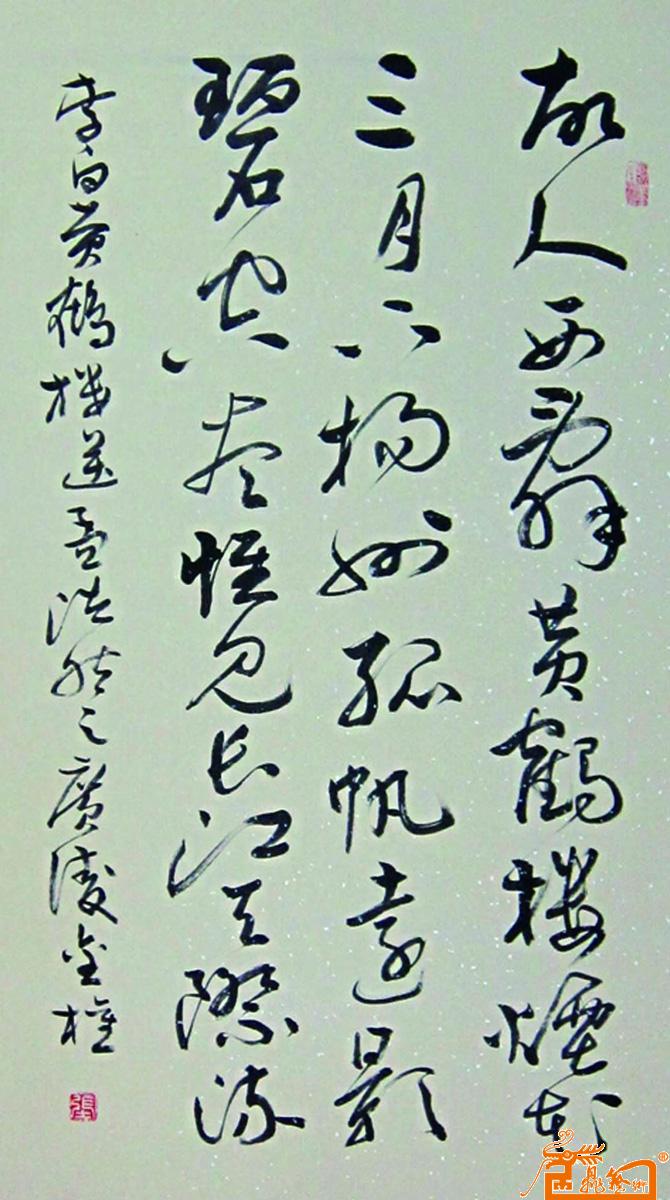 故人西辞黄鹤楼煙花
三月下揚州孤帆遠影
碧空尽惟见长江天際流
李白黄鹤楼送孟浩然之廣陵金權
張